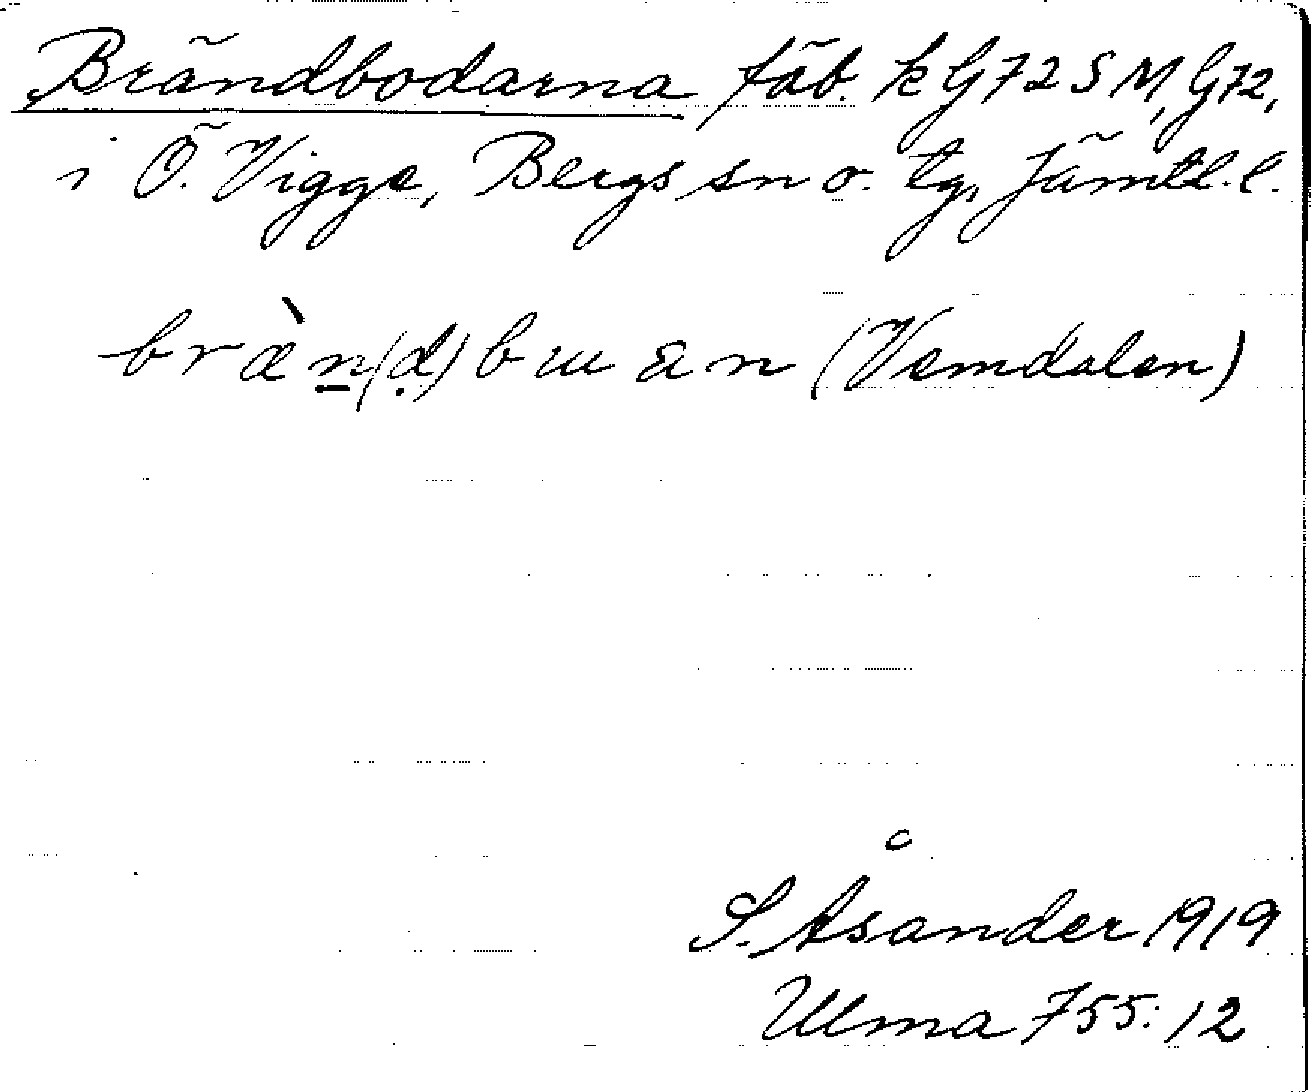 Brändbodarna fäb. k G72SM, G72,
i Ö. Vigge, Bergs sn o. tg, Jämtl. l.
bræ̀n(d)bɯan (Vemdalen)
S. Åsander 1919
Ulma 755:12